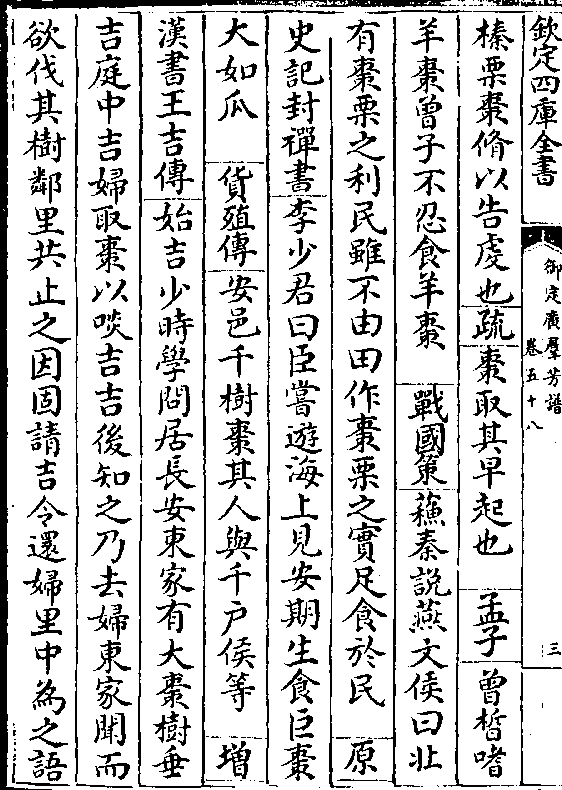 欽定四庫全書
御定廣羣芳譜
卷五十八
三
榛栗棗脩以告虔也疏棗取其早起也 孟子曾晳嗜
羊棗曾子不忍食羊棗 戰國策蘇秦説燕文侯曰北
有棗栗之利民雖不由田作棗栗之實足食於民 原
史記封禪書李少君曰臣嘗遊海上見安期生食巨棗
大如瓜 貨殖傳安邑千樹棗其人與千户侯等 增
漢書王吉傳始吉少時學問居長安東家有大棗樹垂
吉庭中吉婦取棗以啖吉吉後知之乃去婦東家聞而
欲伐其樹鄰里共止之因固請吉令還婦里中為之語